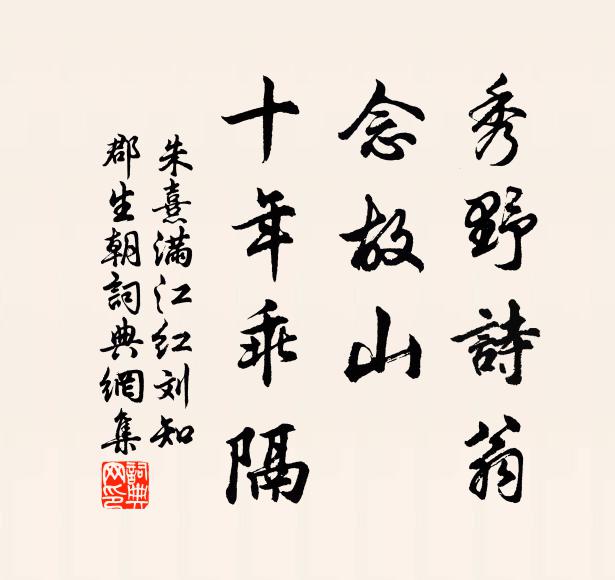 秀野詩翁
念故山
十年乖隔
朱熹滿江红刘知
郡生朝詞典網集
詞典网印